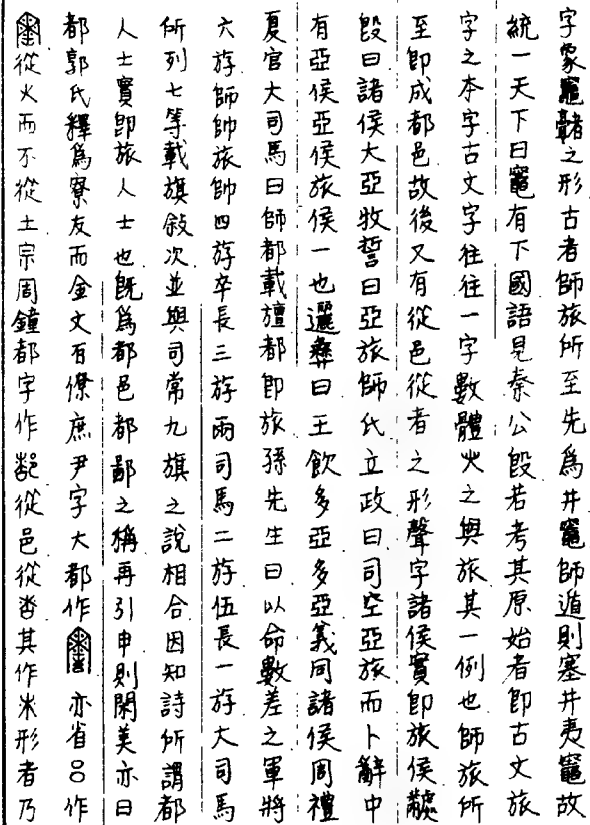 字象竈諸之形古者師旅所至先為井竈師遁則塞井夷竈故
統一天下曰竈有下國語見秦公𣪘若考其原始者即古文旅
字之本字古文字往往一字數體火之與旅其一例也師旅所
至即成都邑故後又有從邑從者之形聲字諸侯實即旅侯
𣪘曰諸侯大亞牧誓曰亞旅師氏立政曰司空亞旅而卜辭中
有亞侯亞侯旅侯一也邐彝曰王飲多亞多亞義同諸侯周禮
夏官大司馬曰師都載旜都即旅孫先生曰以命數差之軍將
六斿師帥旅帥四斿卒長三斿兩司馬二斿伍長一斿大司馬
所列七等載旗敍次並與司常九旗之說相合因知詩所謂都
人士實即旅人士也既為都邑都鄙之稱再引申則閑美亦曰
都郭氏釋為寮友而金文百僚庶尹字大都作 亦省吕作
從火而不從土宗周鐘都字作 從邑從㫺其作米形者乃